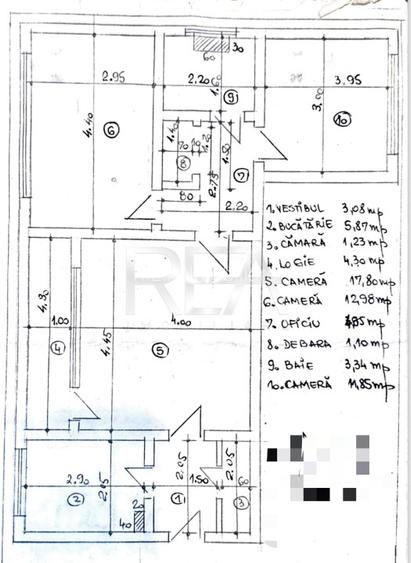 30
60
2.95
2.20
3.95
1.60
9
3.00
10
4.40
6
1.40
70
8
1.50
7
2.75
80
2.20
1. VESTIBUL 3,08 mp
2. BUCĂTĂRIE 5,87 mp
3. CĂMARĂ 1,23 mp
4. LOGIE 4,30 mp
5. CAMERĂ 17,80 mp
6. CAMERĂ 12,98 mp
7. OFICIU
8. DEBARA 1,10 mp
9. BAIE 3,34 mp
10. CAMERĂ 11,85 mp
REA
4.30
1.00
4.00
4
4.45
5
2.90
2.05
2.05
2.05
1.50
60
2
1
3
20
40